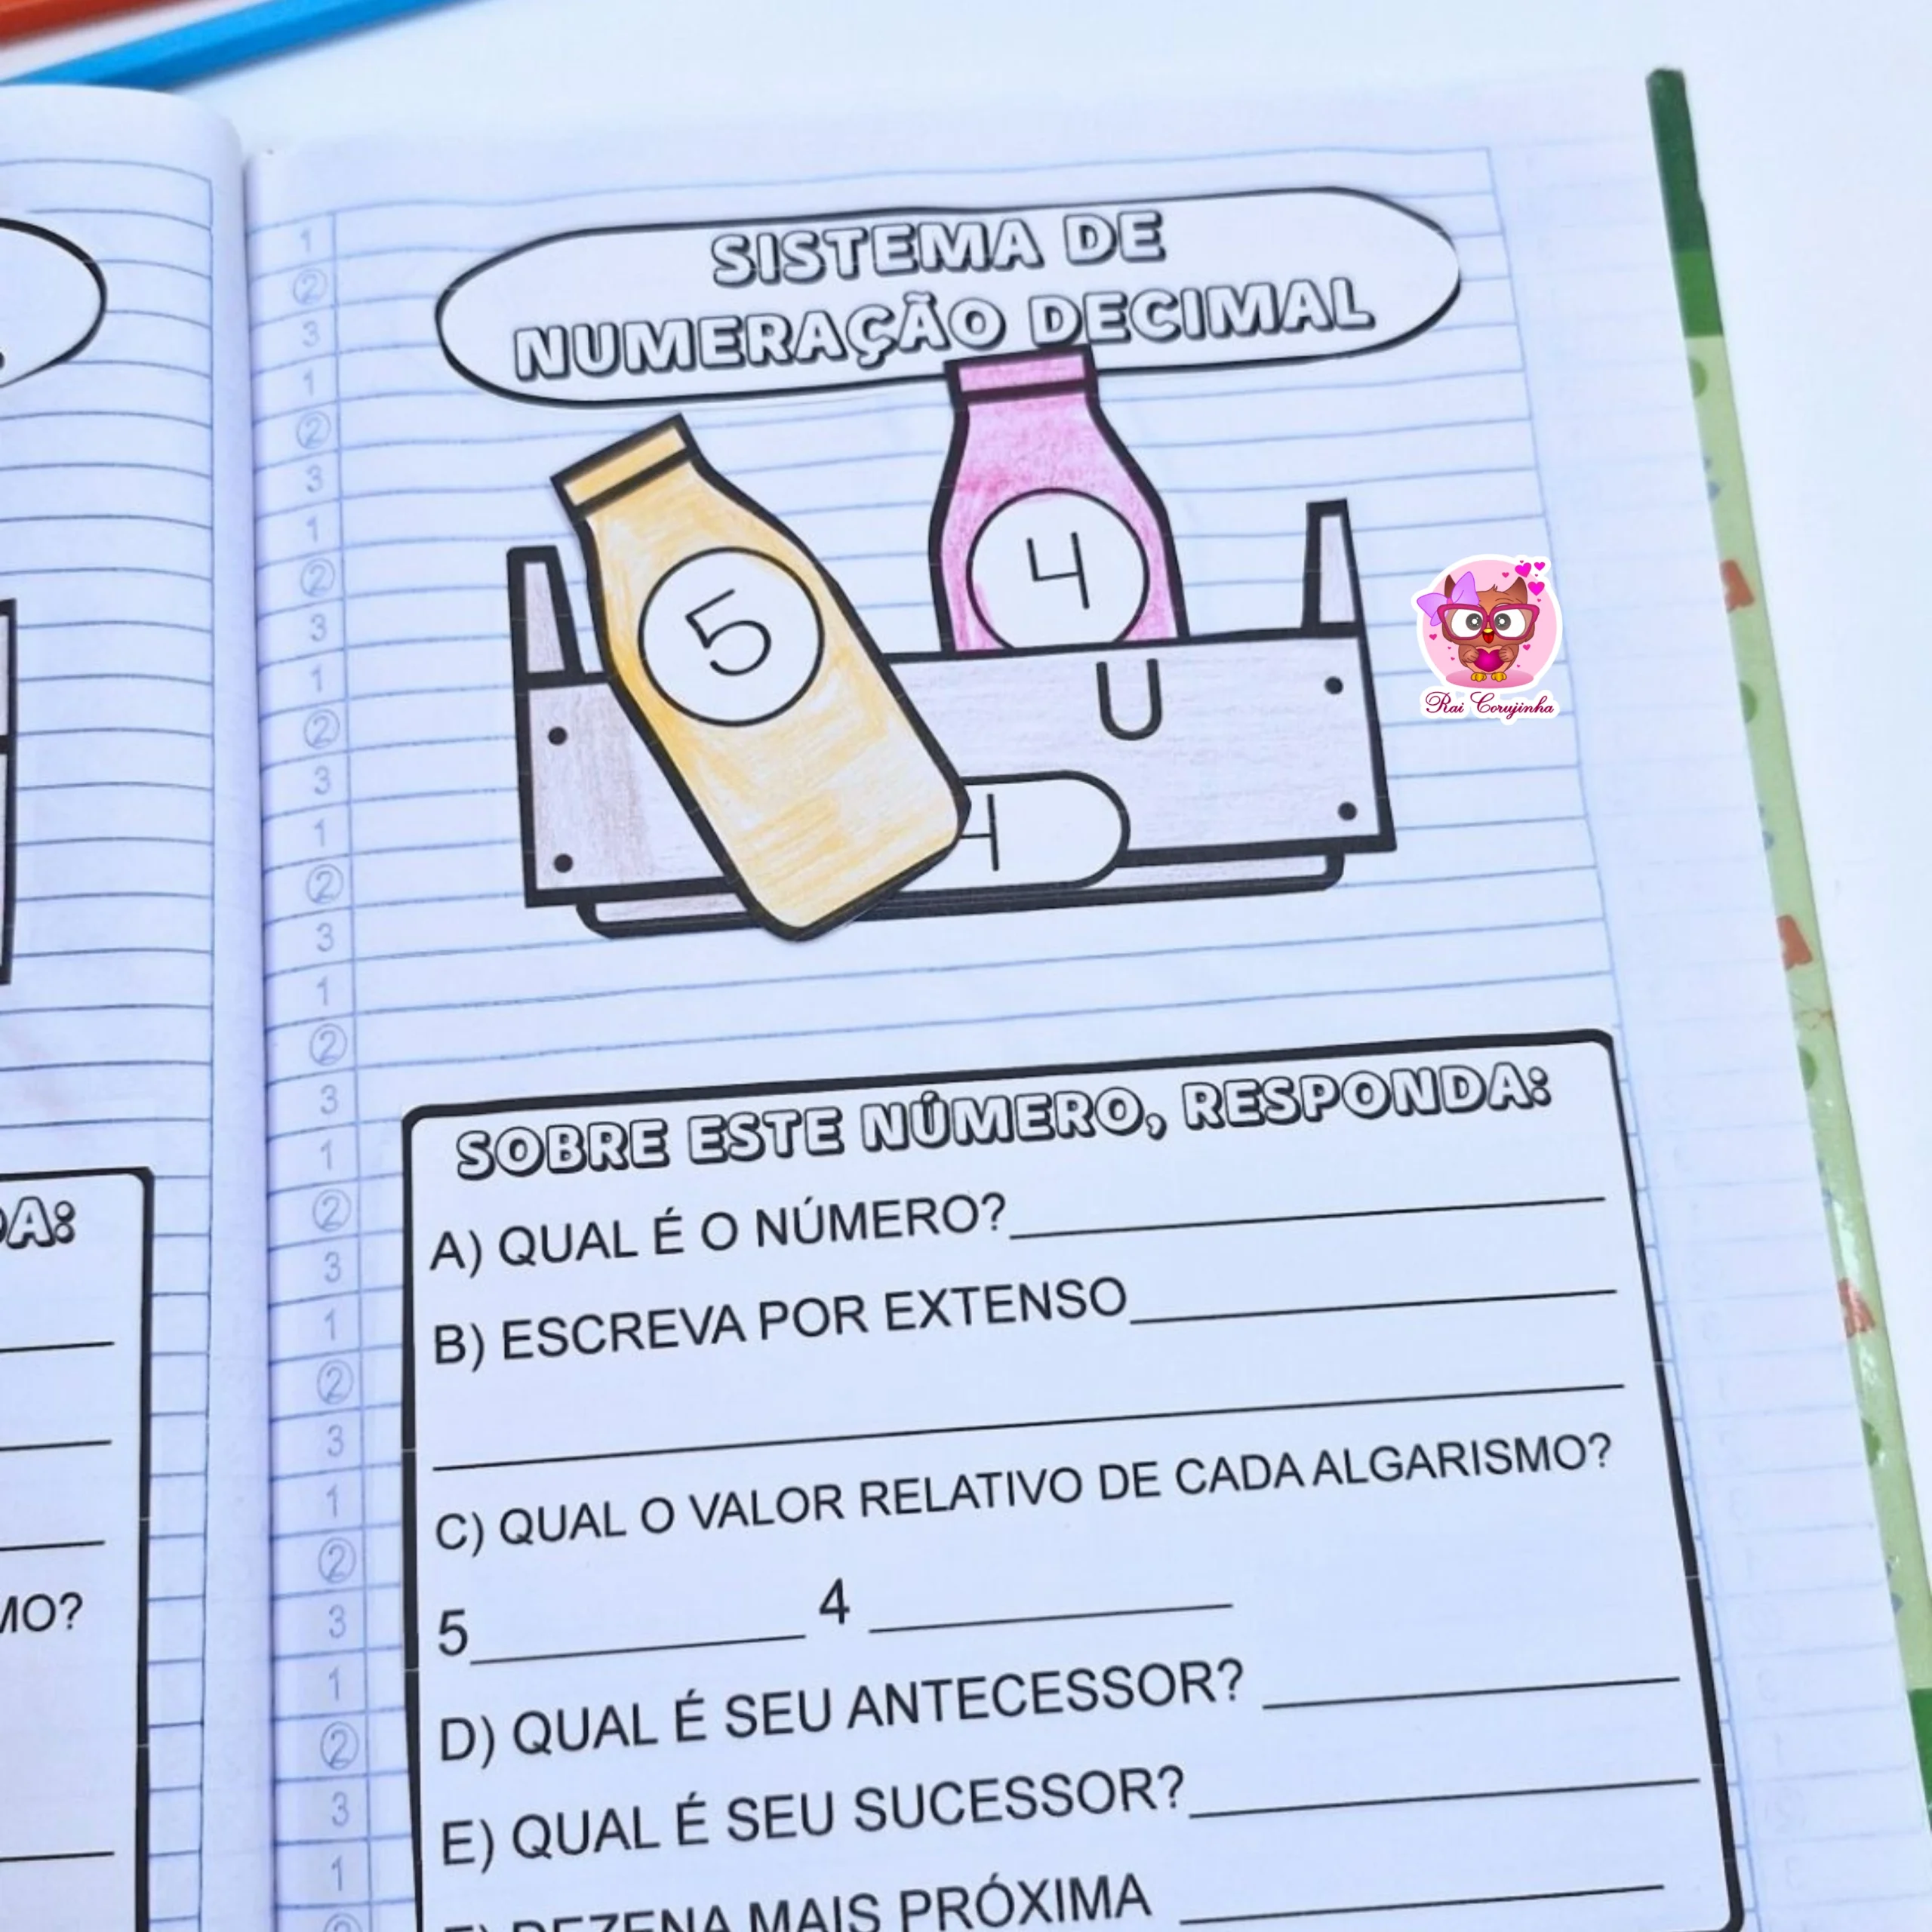 SISTEMA DE
NUMERAÇÃO DECIMAL
5
4
U
4
Rai Corujinha
SOBRE ESTE NÚMERO, RESPONDA:
A) QUAL É O NÚMERO?
B) ESCREVA POR EXTENSO
C) QUAL O VALOR RELATIVO DE CADA ALGARISMO?
5 4
D) QUAL É SEU ANTECESSOR?
E) QUAL É SEU SUCESSOR?
DEZENA MAIS PRÓXIMA